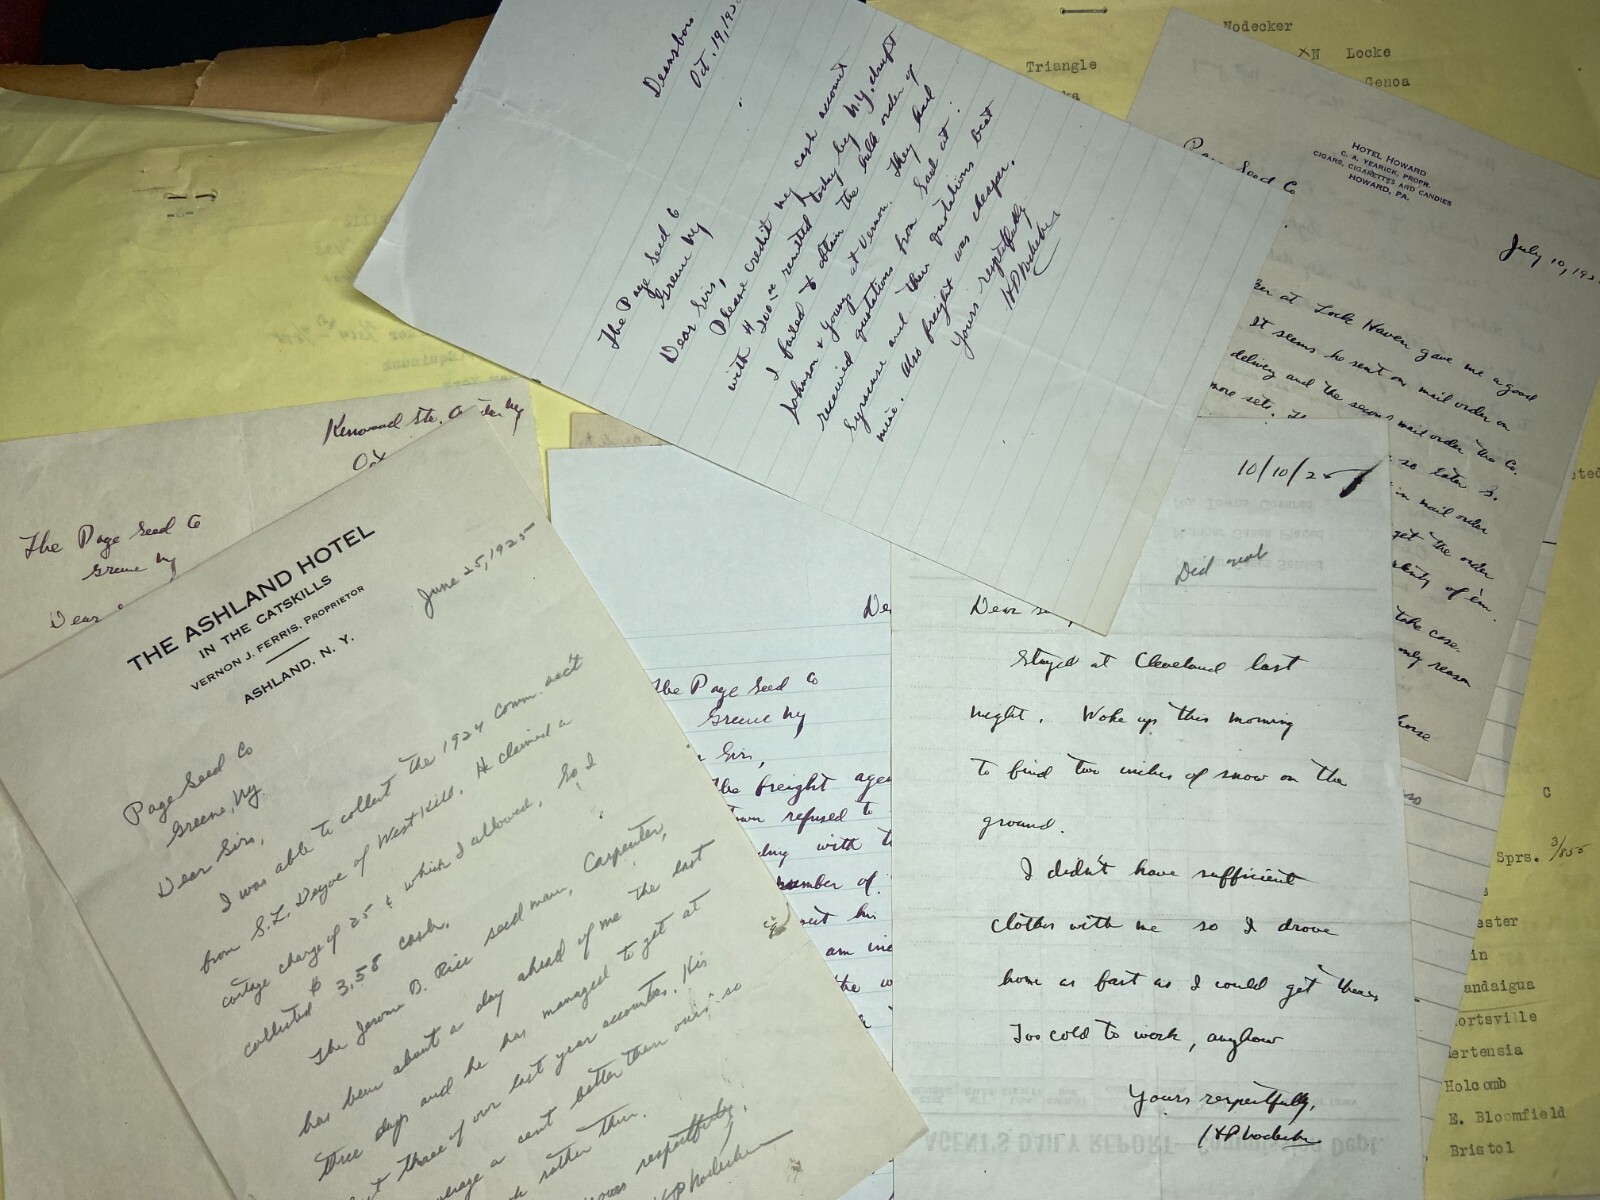 Nodecker
×N Locke
Triangle
Genoa
Deansboro
Oct. 19, 192
The Page Seed Co
Greene Ny
Dear Sirs,
Please credit my cash account
with $200.00 remitted today by N.Y. draft
I failed to obtain the bulk order of
Johnson & Young at Vernon. They had
received quotations from Seed at
Syracuse and their quotations beat
mine. Also freight was cheaper.
Yours respectfully
HPNodecker
Page Seed Co
HOTEL HOWARD
C. A. YEARICK, PROPR.
CIGARS, CIGARETTES AND CANDIES
HOWARD, PA.
July 10, 192
ker at Lock Haven gave me a good
It seems he sent on mail order on
delivery and the second mail order the Co.
more sets.
so later
in mail order
get the order
plenty of em.
take case.
only reason
horse
so
Kenwood Sta.
The Page Seed Co
Greene Ny
Dear
THE ASHLAND HOTEL
IN THE CATSKILLS
VERNON J. FERRIS, PROPRIETOR
ASHLAND, N. Y.
June 25, 1925
Page Seed Co
Greene, Ny.
Dear Sirs,
I was able to collect the 1924 Comm. acct
from S.L. Deyoe of West Kill. He claimed a
cartage charge of 25¢ which I allowed, So I
collected $3.58 cash.
The Jerome B. Rice seed man, Carpenter,
has been about a day ahead of me the last
three days and he has managed to get at
three of our last year accounts. His
average a cent better than ours so
rather thin.
Yours respectfully,
HPNodecker
De
The Page Seed Co
Greene Ny
Sirs,
The freight age
town refused to
with t
number of
out his
am inc
the w
10/10/25
Did not
Dear s
Stayed at Cleveland last
night. Woke up this morning
to find two inches of snow on the
ground.
I didn't have sufficient
clothes with me so I drove
home as fast as I could get there
Too cold to work, anyhow
Yours respectfully,
HPNodecker
No. Towns Covered
Number Cases Placed
AGENT'S DAILY REPORT—Commission Dept.
C
Sprs. 3/855
ester
in
andaigua
ortsville
ertensia
Holcomb
E. Bloomfield
Bristol